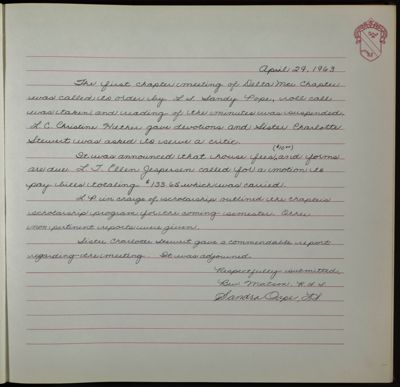 April 29, 1963
The first chapter meeting of Delta Mu Chapter
was called to order by L.I. Sandy Pope, roll call
was taken and reading of the minutes was suspended.
L.C. Christine gave devotions and Sister Charlotte
Stewart was asked to serve a critic.
($10.00)
It was announced that house fees, and forms
are due. L.T. Ellen Jespersen called for a motion to
pay bills totaling $133.65 which was carried.
L.P. in charge of scholarship outlined the chapter's
scholarship program for the coming semester. Other
non pertinent reports were given.
Sister Charlotte Stewart gave a commendable report
regarding the meeting. It was adjourned.
Respectfully submitted,
Bev Matson, R.&S.
Sandra Pope,